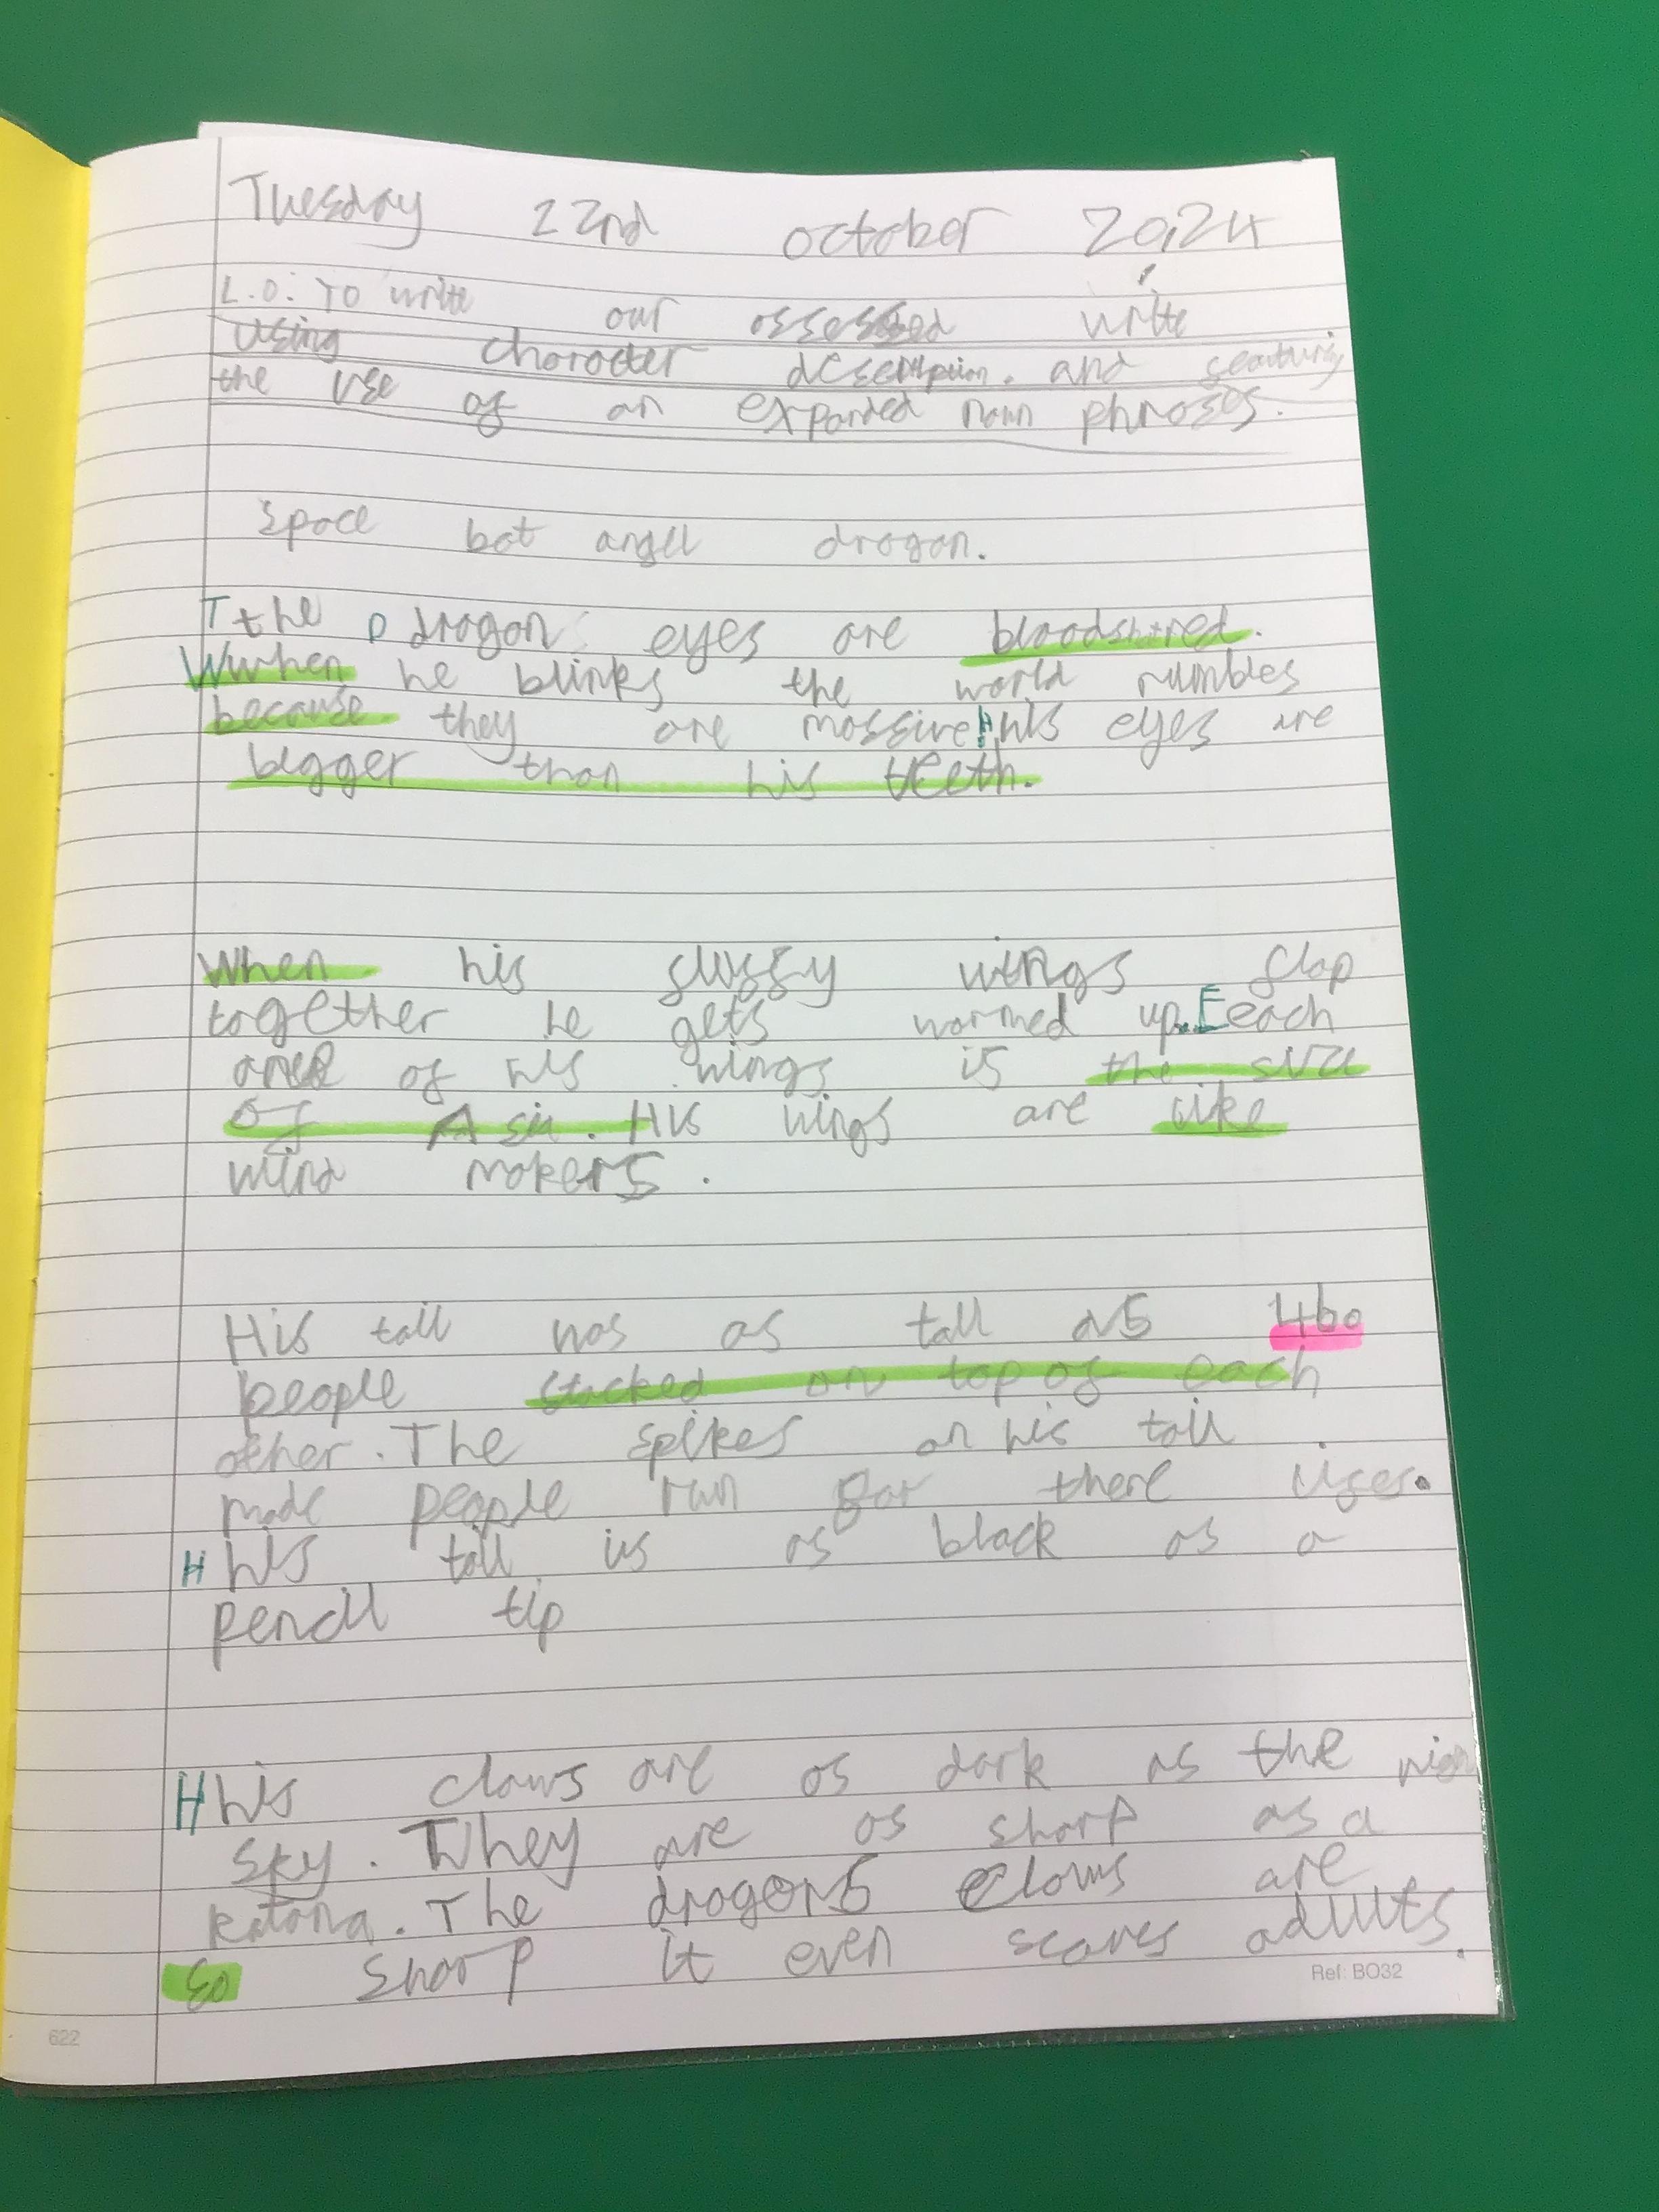 Tuesday 22nd october 2024
L.O: To write our assessed write
using character description. and featuring
the use of an expanded noun phrases.
Space bat angel dragon.
T the D dragon eyes are bloodshotred.
W when he blinks the world rumbles
because they are massive H his eyes are
bigger than his teeth.
When his fluffy wings flap
together he gets warmed up. E each
of his wings is the size
of Asia. His wings are like
wind makers.
His tail was as tall as 460
people stacked on top of each
other. The spikes on his tail
made people run for there lifes.
H his tail is as black as a
pencil tip
H his claws are as dark as the
sky. They are as sharp as a
katana. The dragons claws are
so sharp it even scares adults.
Ref: BO32
622